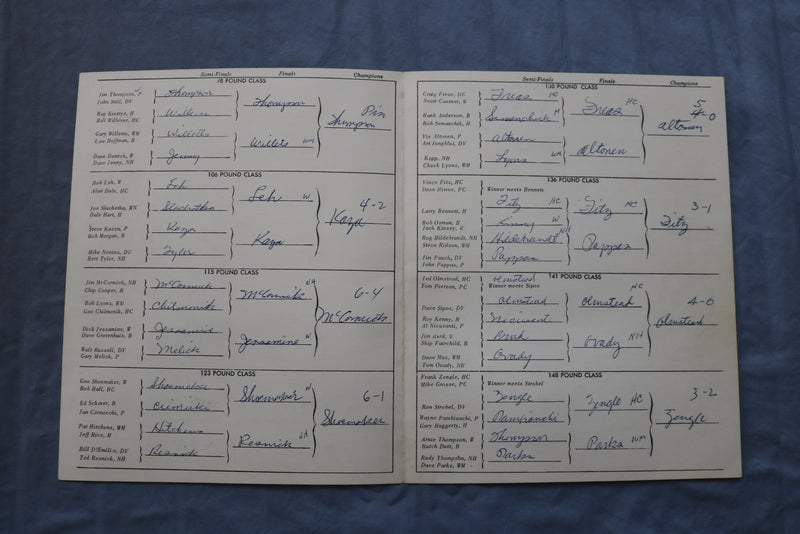 Semi-Finals Finals Champions
98 POUND CLASS
Jim Thompson,
John Still, DV
Thompson
Ray Kintrys, H
Bill Willever, HC
Willever
Thompson
Gary Willetts, WM
Lew Hoffman, B
Willetts
Dave Dotrick, W
Dave Jenny, NH
Jenny
Willets WM
Pin
Thompson
106 POUND CLASS
Bob Leh, W
Alan Dale, HC
Leh
Joe Sluchetka, WN
Dale Hart, H
Leh W
Steve Kuzzo, P
Bob Morgan, B
Kaza
Mike Nevins, DV
Bert Tyler, NH
Tyler
Kaza
4-2
Kaza
115 POUND CLASS
Jim McCormick, NH
Chip Cooper, H
McCormick
Bob Lyons, WM
Geo Chilmonik, HC
Chilmonik
McCormick NH
Dick Jessamine, W
Dave Grotenhuis, B
Jessamine
Walt Russell, DV
Gary Melick, P
Melick
Jessamine W
6-4
McCormick
123 POUND CLASS
Geo Shoemaker, W
Rob Hall, HC
Shoemaker
Ed Scherer, B
Ian Carmiecki, P
Shoemaker W
Pat Hitchens, WM
Jeff Rice, H
Hitchens
Bill D'Emilio, DV
Ted Resnick, NH
Resnick
Resnick NH
6-1
Shoemaker
Semi-Finals Finals Champions
130 POUND CLASS
Craig Freas, HC
Scott Custner, W
Freas HC
Hank Anderson, B
Bob Semanchik, H
Semanchick H
Freas HC
Vic Altonen, P
Art Jungblut, DV
Altonen
Kapp, NH
Chuck Lyons, WM
Lyons WM
Altonen
5
4-0
Altonen
136 POUND CLASS
Vince Fitz, HC
Dave Himes, PC
Winner meets Bennett
Larry Bennett, H
Fitz HC
Bob Osmun, B
Jack Kinney, W
Kinney W
Fitz HC
Rog Hildebrandt, NH
Steve Ridson, WM
Hildebrandt NH
Jim Pauch, DV
John Pappas, P
Pappas
Pappas
3-1
Fitz
141 POUND CLASS
Ted Olmstead, HC
Tom Pierson, PC
Olmstead
Winner meets Sipos
Dave Sipos, DV
Olmstead
Ray Kenny, H
Al Nicusanti, P
Nicusanti
Olmstead HC
Skip Fairchild, B
Dave Hax, WM
Tom Ovady, NH
Ovady
Ovady NH
4-0
Olmstead
148 POUND CLASS
Frank Zengle, HC
Mike Greene, PC
Winner meets Strobel
Ron Strobel, DV
Zengle
Wayne Pambianchi, P
Gary Haggerty, H
Pambianchi
Zengle HC
Arnie Thompson, W
Butch Dutt, B
Thompson
Rudy Thompson, NH
Dave Parks, WM
Parks
Parks WM
3-2
Zengle